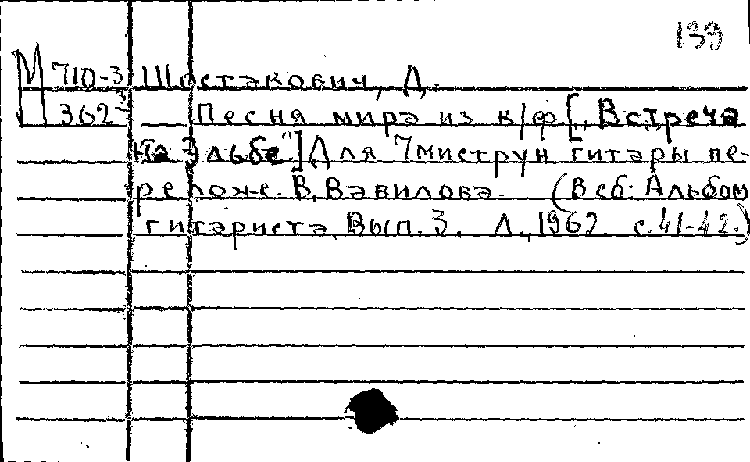 139
М 710-3 Шостакович, Д.
362-3 Песня мира из к/ф ["Встреча
на Эльбе"] Для 7миструн гитары пе-
реложе. В. Вавилова. (В сб: Альбом
гитариста. Вып. 3. Л., 1962 с. 41-42.)